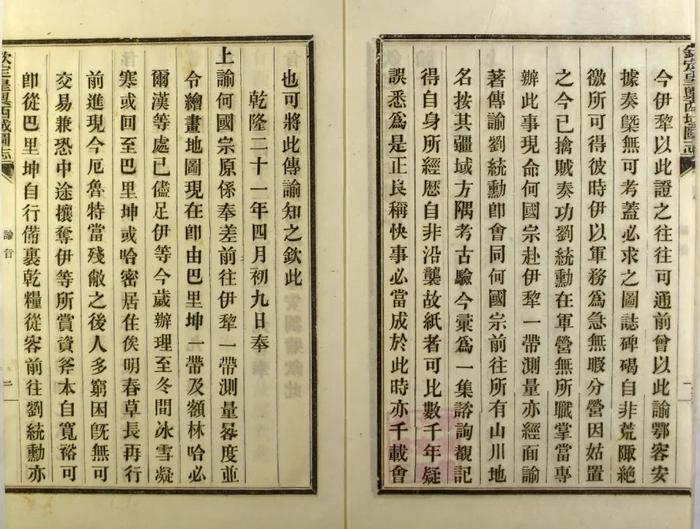 欽定皇輿西域圖志
今伊犂以此證之往往可通前曾以此諭鄂容安
據奏槩無可考蓋必求之圖誌碑碣自非荒陬絶
徼所可得彼時伊以軍務為急無暇分營因姑置
之今已擒賊奏功劉統勳在軍營無所職掌當專
辦此事現命何國宗赴伊犂一帶測量亦經面諭
著傳諭劉統勳卽會同何國宗前往所有山川地
名按其疆域方隅考古驗今彚為一集諮詢覩記
得自身所經歴自非沿襲故紙者可比數千年疑
誤悉為是正良稱快事必當成於此時亦千載會
也可將此傳諭知之欽此
乾隆二十一年四月初九日奉
上諭何國宗原係奉差前往伊犂一帶測量晷度並
令繪畫地圖現在卽由巴里坤一帶及額林哈必
爾漢等處已儘足伊等今歲辦理至冬間冰雪凝
寒或回至巴里坤或哈密居住俟明春草長再行
前進現今厄魯特當殘敝之後人多窮困旣無可
交易兼恐中途攘奪伊等所賞資斧本自寬裕可
卽從巴里坤自行備裹乾糧從容前往劉統勳亦
欽定皇輿西域圖志
諭旨
二